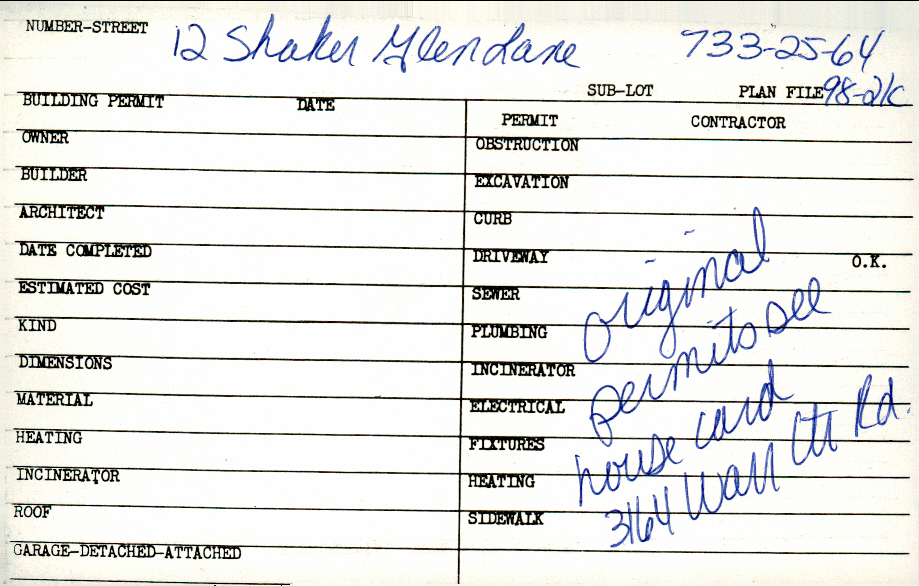 NUMBER-STREET 12 Shaker Glen Lane 733-25-64
SUB-LOT PLAN FILE 98-21C
BUILDING PERMIT DATE
PERMIT CONTRACTOR
OWNER
OBSTRUCTION
BUILDER
EXCAVATION
ARCHITECT
CURB
DATE COMPLETED
DRIVEWAY O.K.
ESTIMATED COST
SEWER
KIND
PLUMBING
DIMENSIONS
INCINERATOR
MATERIAL
ELECTRICAL
HEATING
FIXTURES
INCINERATOR
HEATING
ROOF
SIDEWALK
GARAGE-DETACHED-ATTACHED
original
permits see
house card
3164 Warr Ctr Rd.